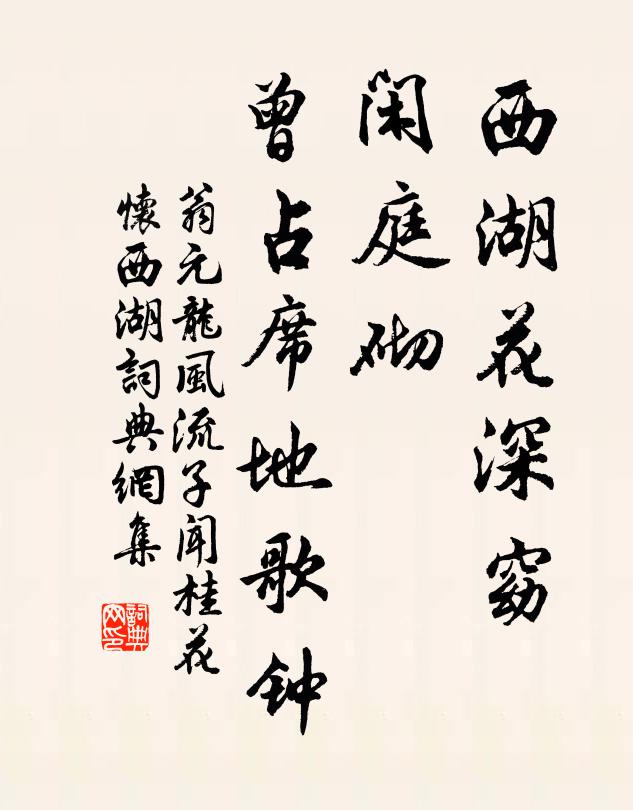 西湖花深窈
闲庭砌
曾占席地歌钟
翁元龍風流子闻桂花
懷西湖詞典網集
詞典网印